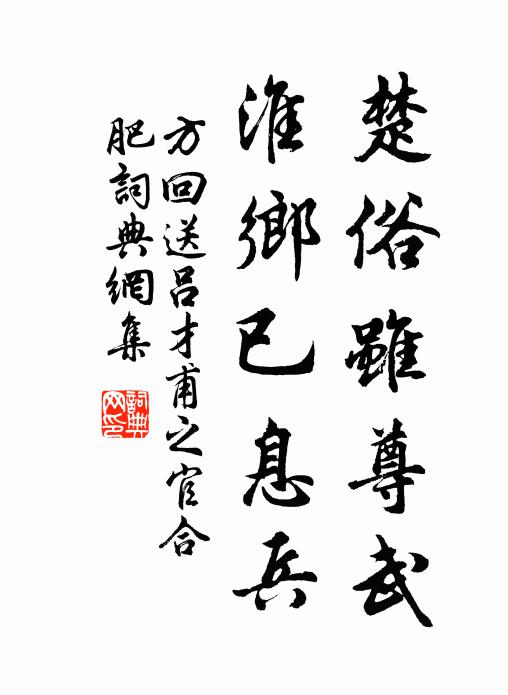 楚俗雖尊武
淮鄉已息兵
方回送呂才甫之官合
肥詞典網集
詞典
网印